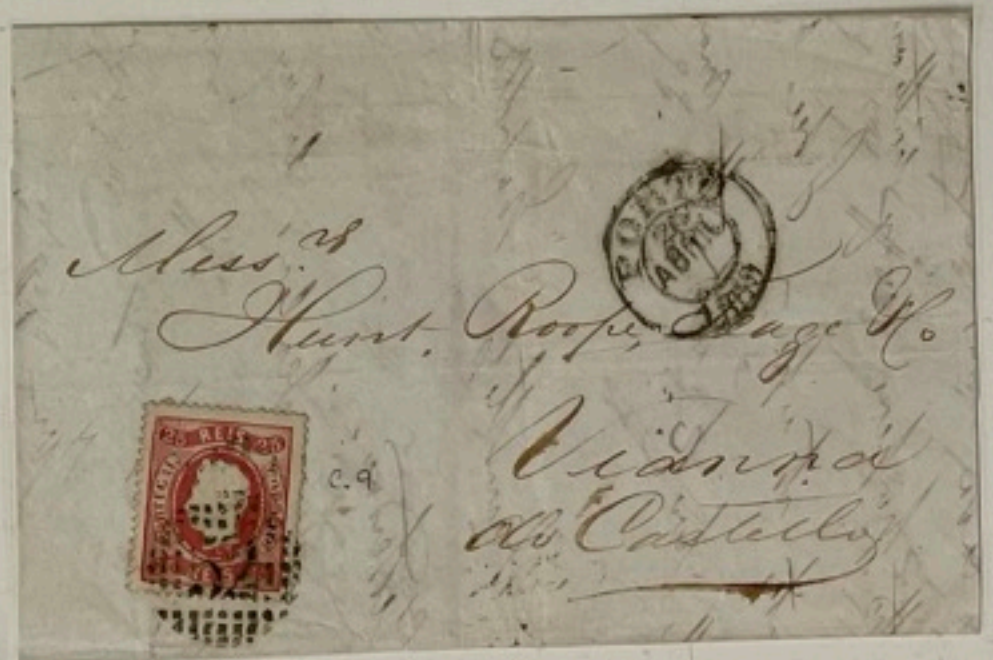 PORTO
ABRIL
1869
Mess.rs
Hunt, Roope, Teage & Co
Vianna
do Castello
25 REIS 25
C.9